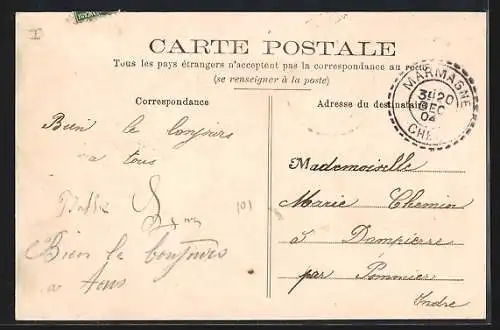 I
CARTE POSTALE
Tous les pays étrangers n'acceptent pas la correspondance au recto
(se renseigner à la poste)
Correspondance
Adresse du destinataire
MARMAGNE
20
DEC
04
CHER
Bien le bonjours
a tous
101
Bien le bonjours
a tous
Mademoiselle
Marie Chemin
à Dampierre
par Pommier
Indre